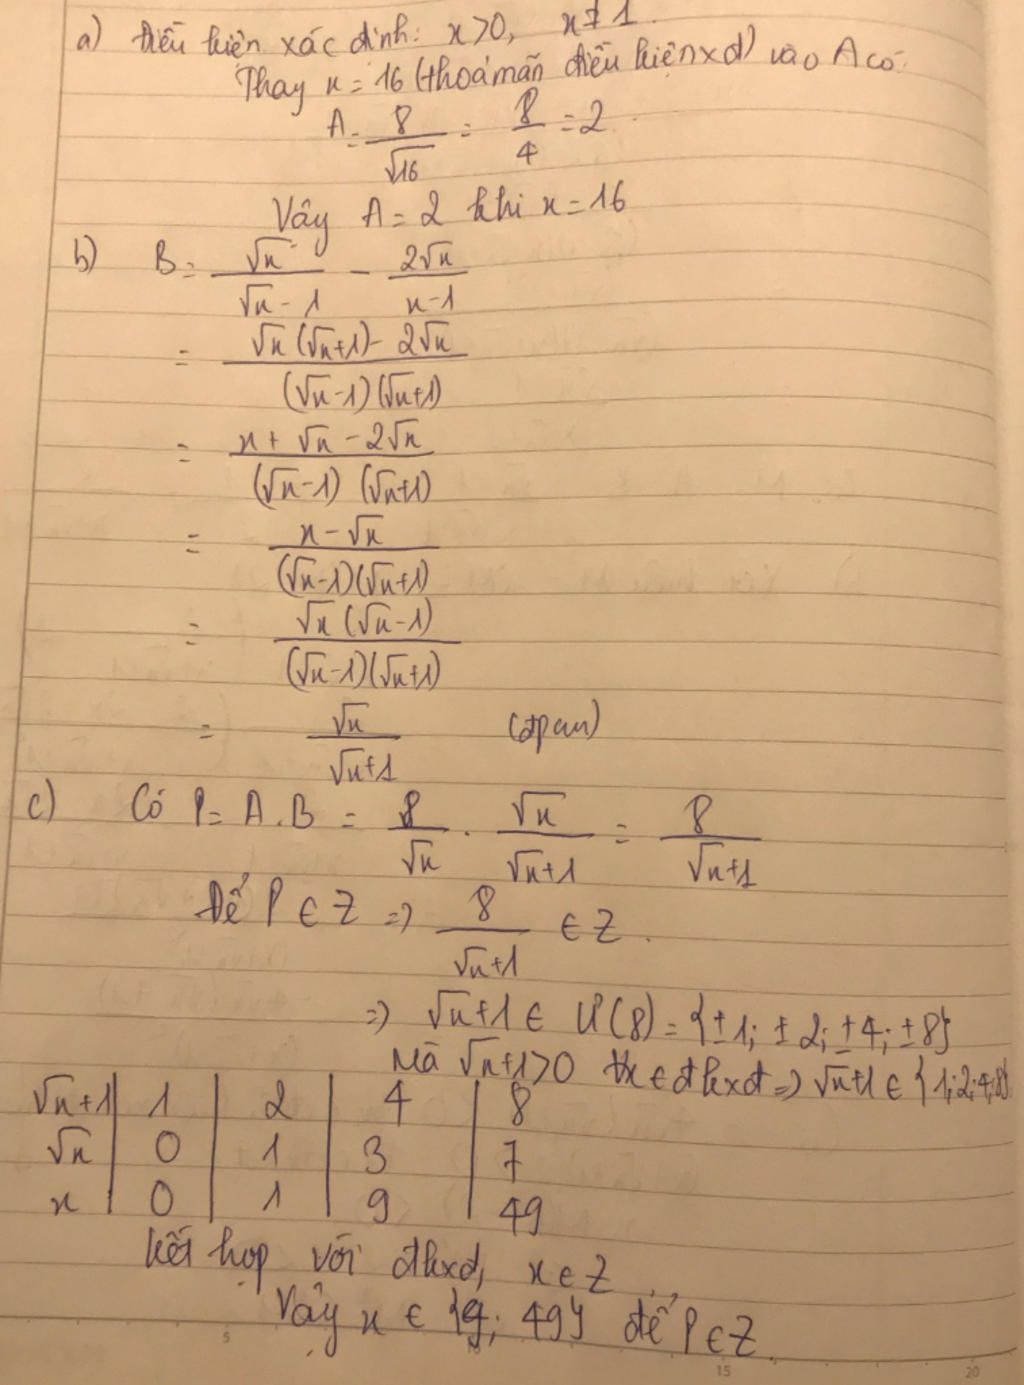 a) Điều kiện xác định: x>0, x≠1.
Thay x = 16 (thoả mãn điều kiện xđ) vào A có:
A = 8/√16 = 8/4 = 2.
Vậy A = 2 khi x = 16
b) B = √x/(√x - 1) - 2√x/(x-1)
= (√x(√x+1) - 2√x)/((√x-1)(√x+1))
= (x + √x - 2√x)/((√x-1)(√x+1))
= (x - √x)/((√x-1)(√x+1))
= (√x(√x-1))/((√x-1)(√x+1))
= √x/(√x+1) (đpcm)
c) Có P = A.B = 8/√x . √x/(√x+1) = 8/(√x+1)
Để P ∈ Z => 8/(√x+1) ∈ Z.
=> √x+1 ∈ Ư(8) = {±1; ±2; ±4; ±8}
Mà √x+1>0 ∀x ∈ đkxđ => √x+1 ∈ {1;2;4;8}
√x+1 | 1 | 2 | 4 | 8
√x | 0 | 1 | 3 | 7
x | 0 | 1 | 9 | 49
Kết hợp với đkxđ, x ∈ Z
Vậy x ∈ {9; 49} để P ∈ Z.
5 10 15 20